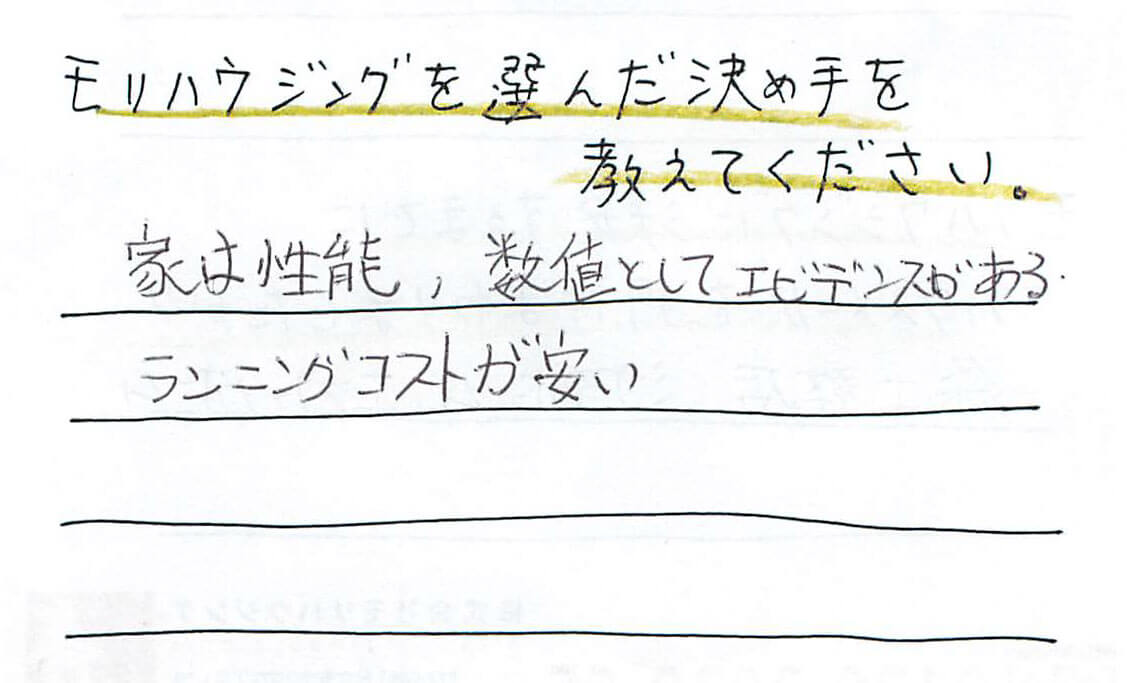 モリハウジングを選んだ決め手を
教えてください。
家は性能，数値としてエビデンスがある.
ランニングコストが安い